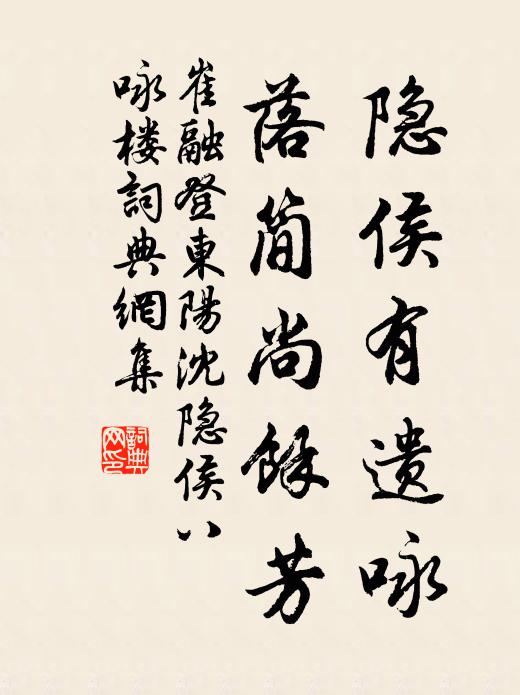 隐侯有遗咏
落简尚餘芳
崔融登東陽沈隐侯八
咏楼詞典網集
詞典网印